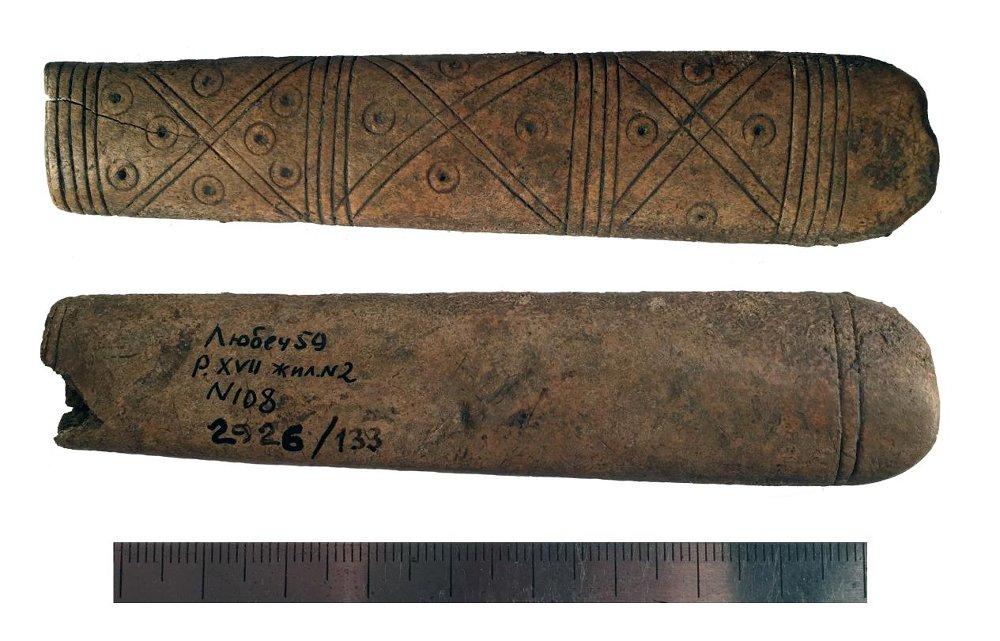 Любеч 59
Р. XVII жил. N2
N108
2926/133